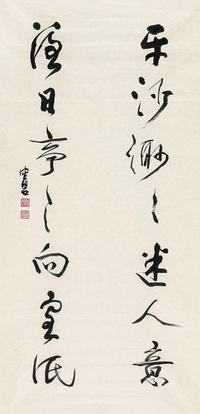 平沙渺渺迷人遠
落日亭亭向客低
中石